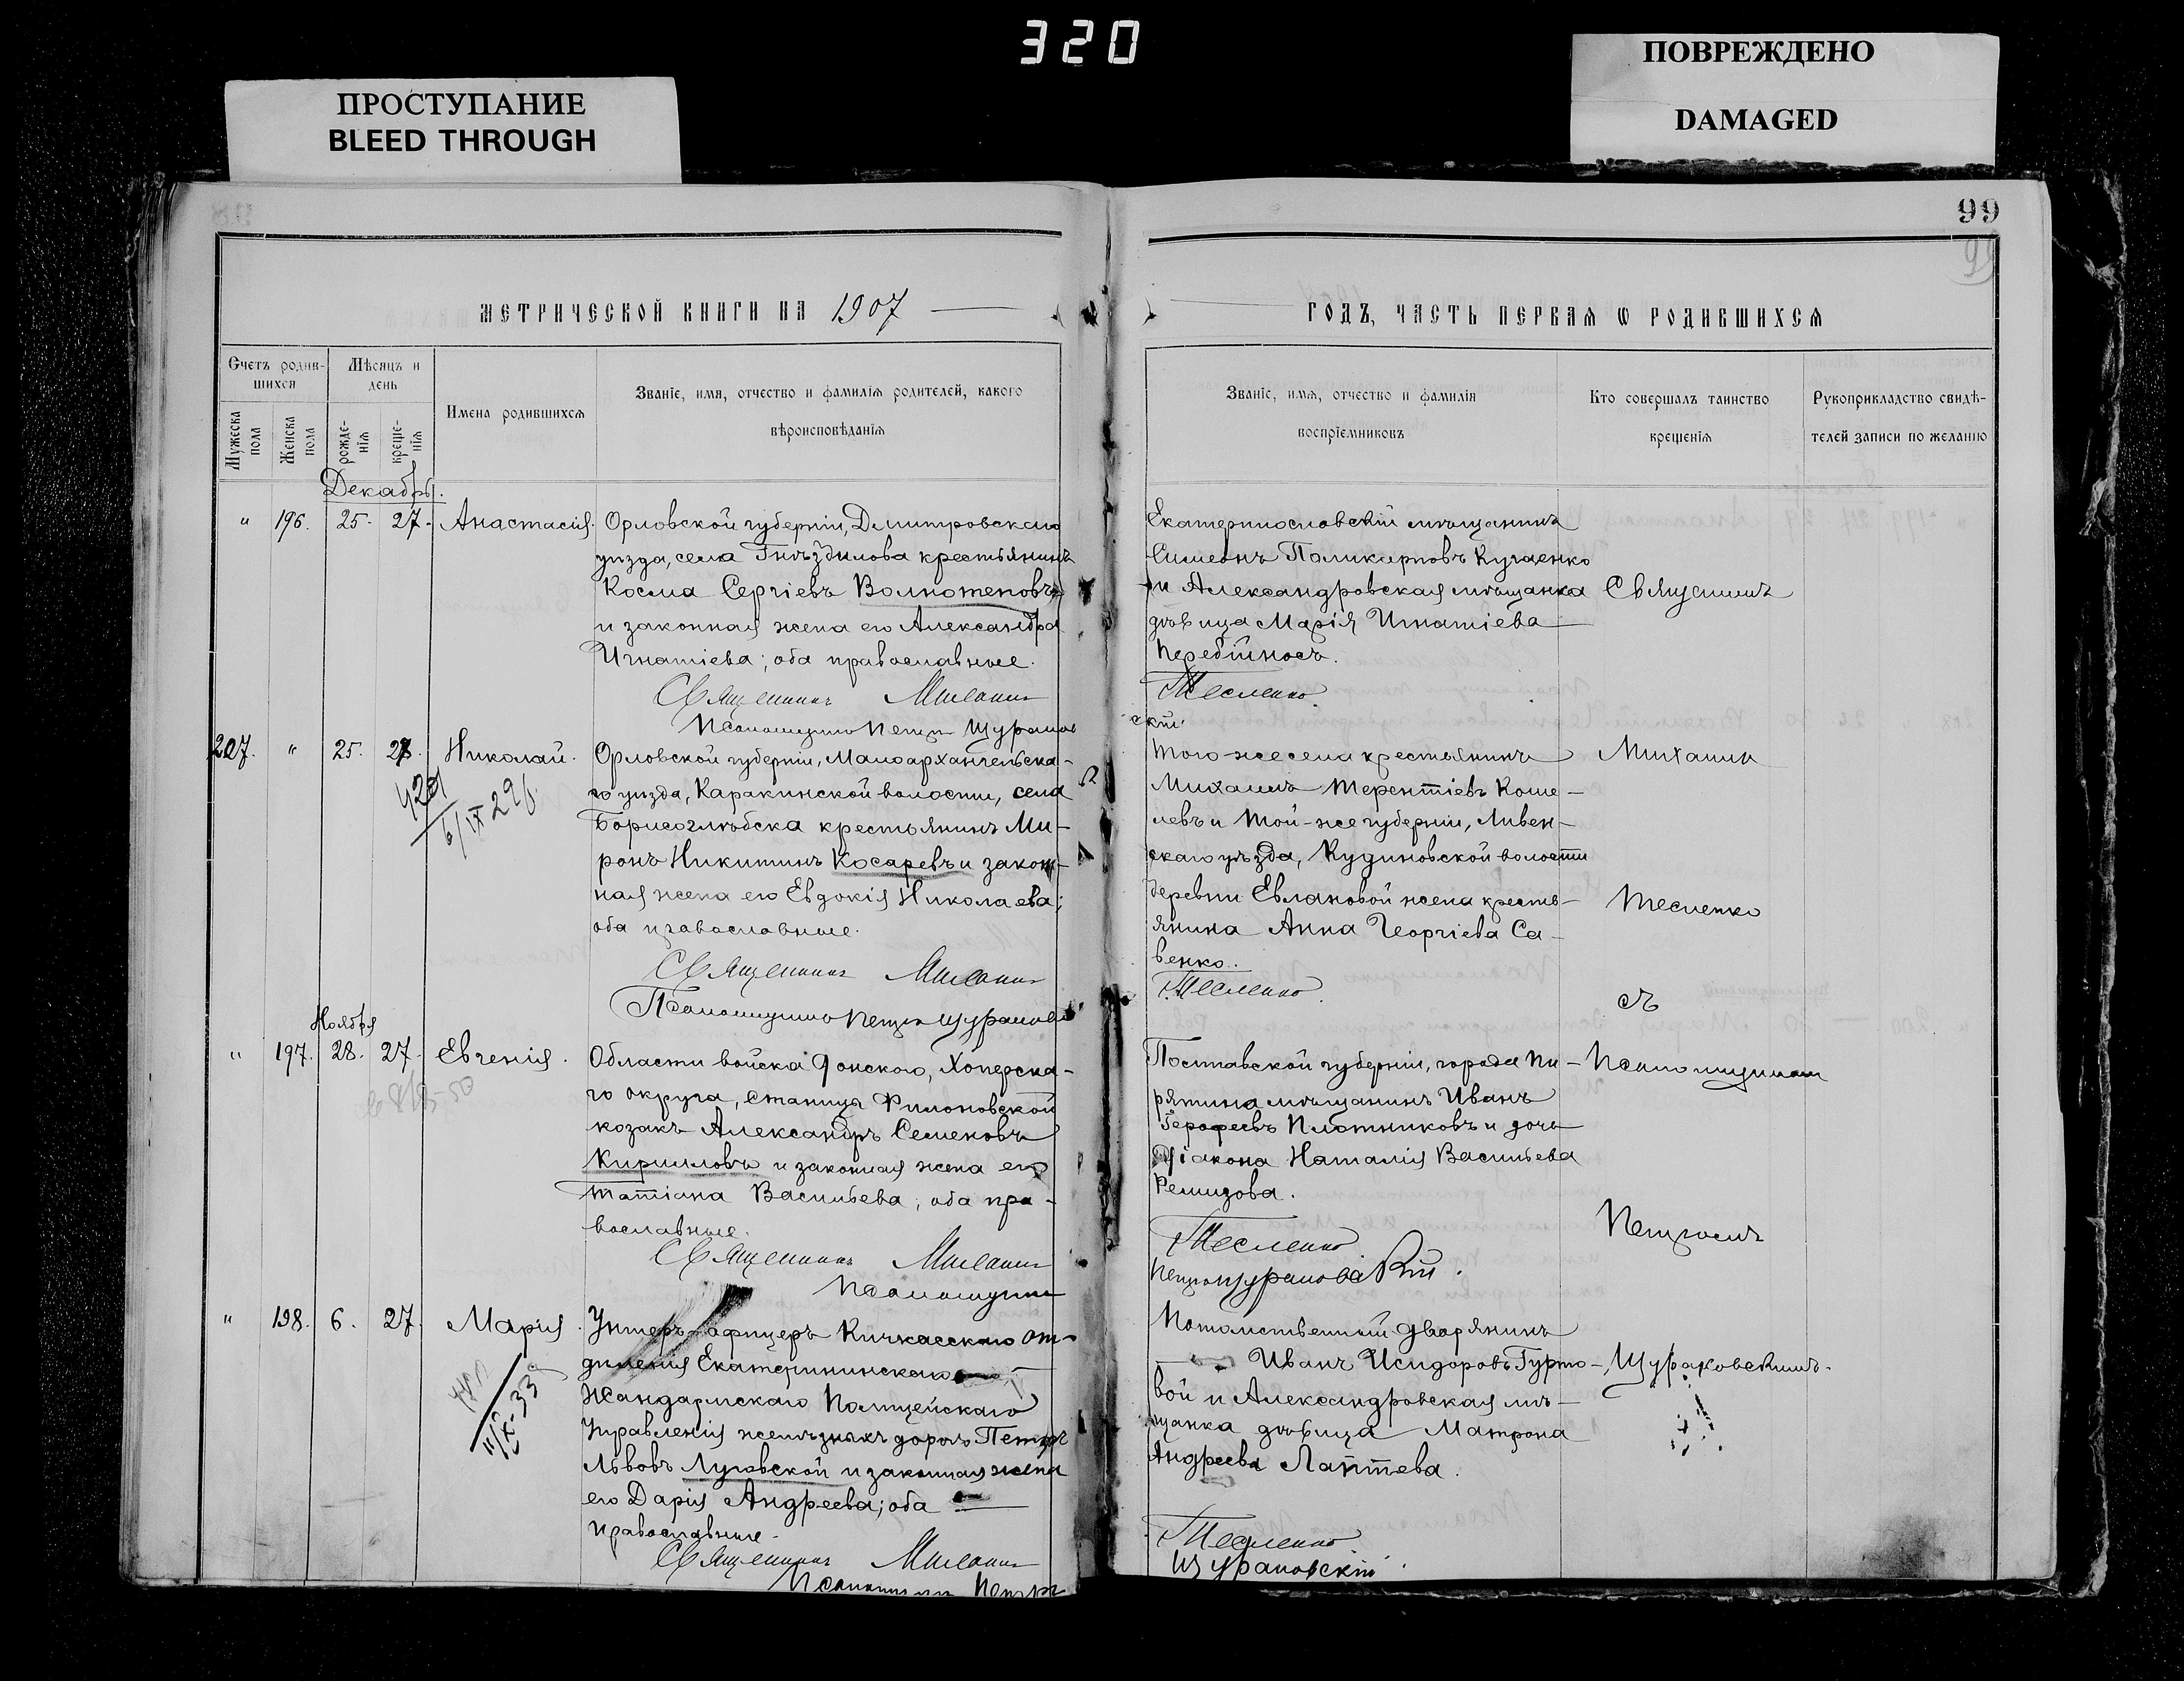 320
ПРОСТУПАНИЕ
BLEED THROUGH
ПОВРЕЖДЕНО
DAMAGED
99
МЕТРИЧЕСКОЙ КНИГИ НА 1907
ГОДЪ, ЧАСТЬ ПЕРВАЯ Ѡ РОДИВШИХСЯ
Счетъ родив-
шихся
Мужеска
пола
Женска
пола
Мѣсяцъ и
день
рожде-
нія
креще-
нія
Имена родившихся
Званіе, имя, отчество и фамилія родителей, какого
вѣроисповѣданія
Званіе, имя, отчество и фамилія
воспріемниковъ
Кто совершалъ таинство
крещенія
Рукоприкладство свидѣ-
телей записи по желанію
Декабрь.
" 196. 25. 27. Анастасія.
Орловской губерніи, Дмитровскаго
уѣзда, села Гнѣздилова крестьянинъ
Косма Сергіевъ
и законная жена его Александра
Игнатіева; оба православные.
Священникъ
Екатеринославскій мѣщанинъ
Симеонъ Поликарповъ Кугаенко
и Александровская мѣщанка
дѣвица Марія Игнатіева
Перебійносъ.
Тесленко
скій.
Священникъ
207. " 25. 28. Николай.
Орловской губерніи, Малоархангельска-
го уѣзда, Каракинской волости, села
Борисоглѣбска крестьянинъ Ми-
ронъ Никитинъ Косаревъ и закон-
ная жена его Евдокія Николаева;
оба православные.
Священникъ
Того-же села крестьянинъ
Михаилъ Терентіевъ Коше-
левъ и той-же губерніи, Ливен-
скаго уѣзда, Кудиновской волости
деревни Евлановой жена кресть-
янина Анна Георгіева Са-
венко.
Тесленко.
Михаилъ
Тесленко
съ
Ноября
" 197. 28. 27. Евгенія.
Области войска Донского, Хоперска-
го округа, станицы Филоновской
козакъ Александръ Семеновъ
Кирилловъ и законная жена его
Татіана Васильева; оба пра-
вославные.
Священникъ
Псаломщикъ
Полтавской губерніи, города Пи-
рятина мѣщанинъ Иванъ
Ерофеевъ Плотниковъ и дочь
Діакона Наталія Васильева
Ремизова.
Тесленко
Псаломщикомъ
Петромъ
" 198. 6. 27. Марія.
Унтеръ-офицеръ Кичкасскаго от-
дѣленія Екатерининскаго
Жандармскаго Полицейскаго
Управленія желѣзныхъ дорогъ Петръ
Львовъ Луговской и законная жена
его Дарія Андреева; оба
православные.
Священникъ
Потомственный дворянинъ
Иванъ Исидоровъ Гурто-
вой и Александровская мѣ-
щанка дѣвица Матрона
Андреева Лаптева.
Тесленко